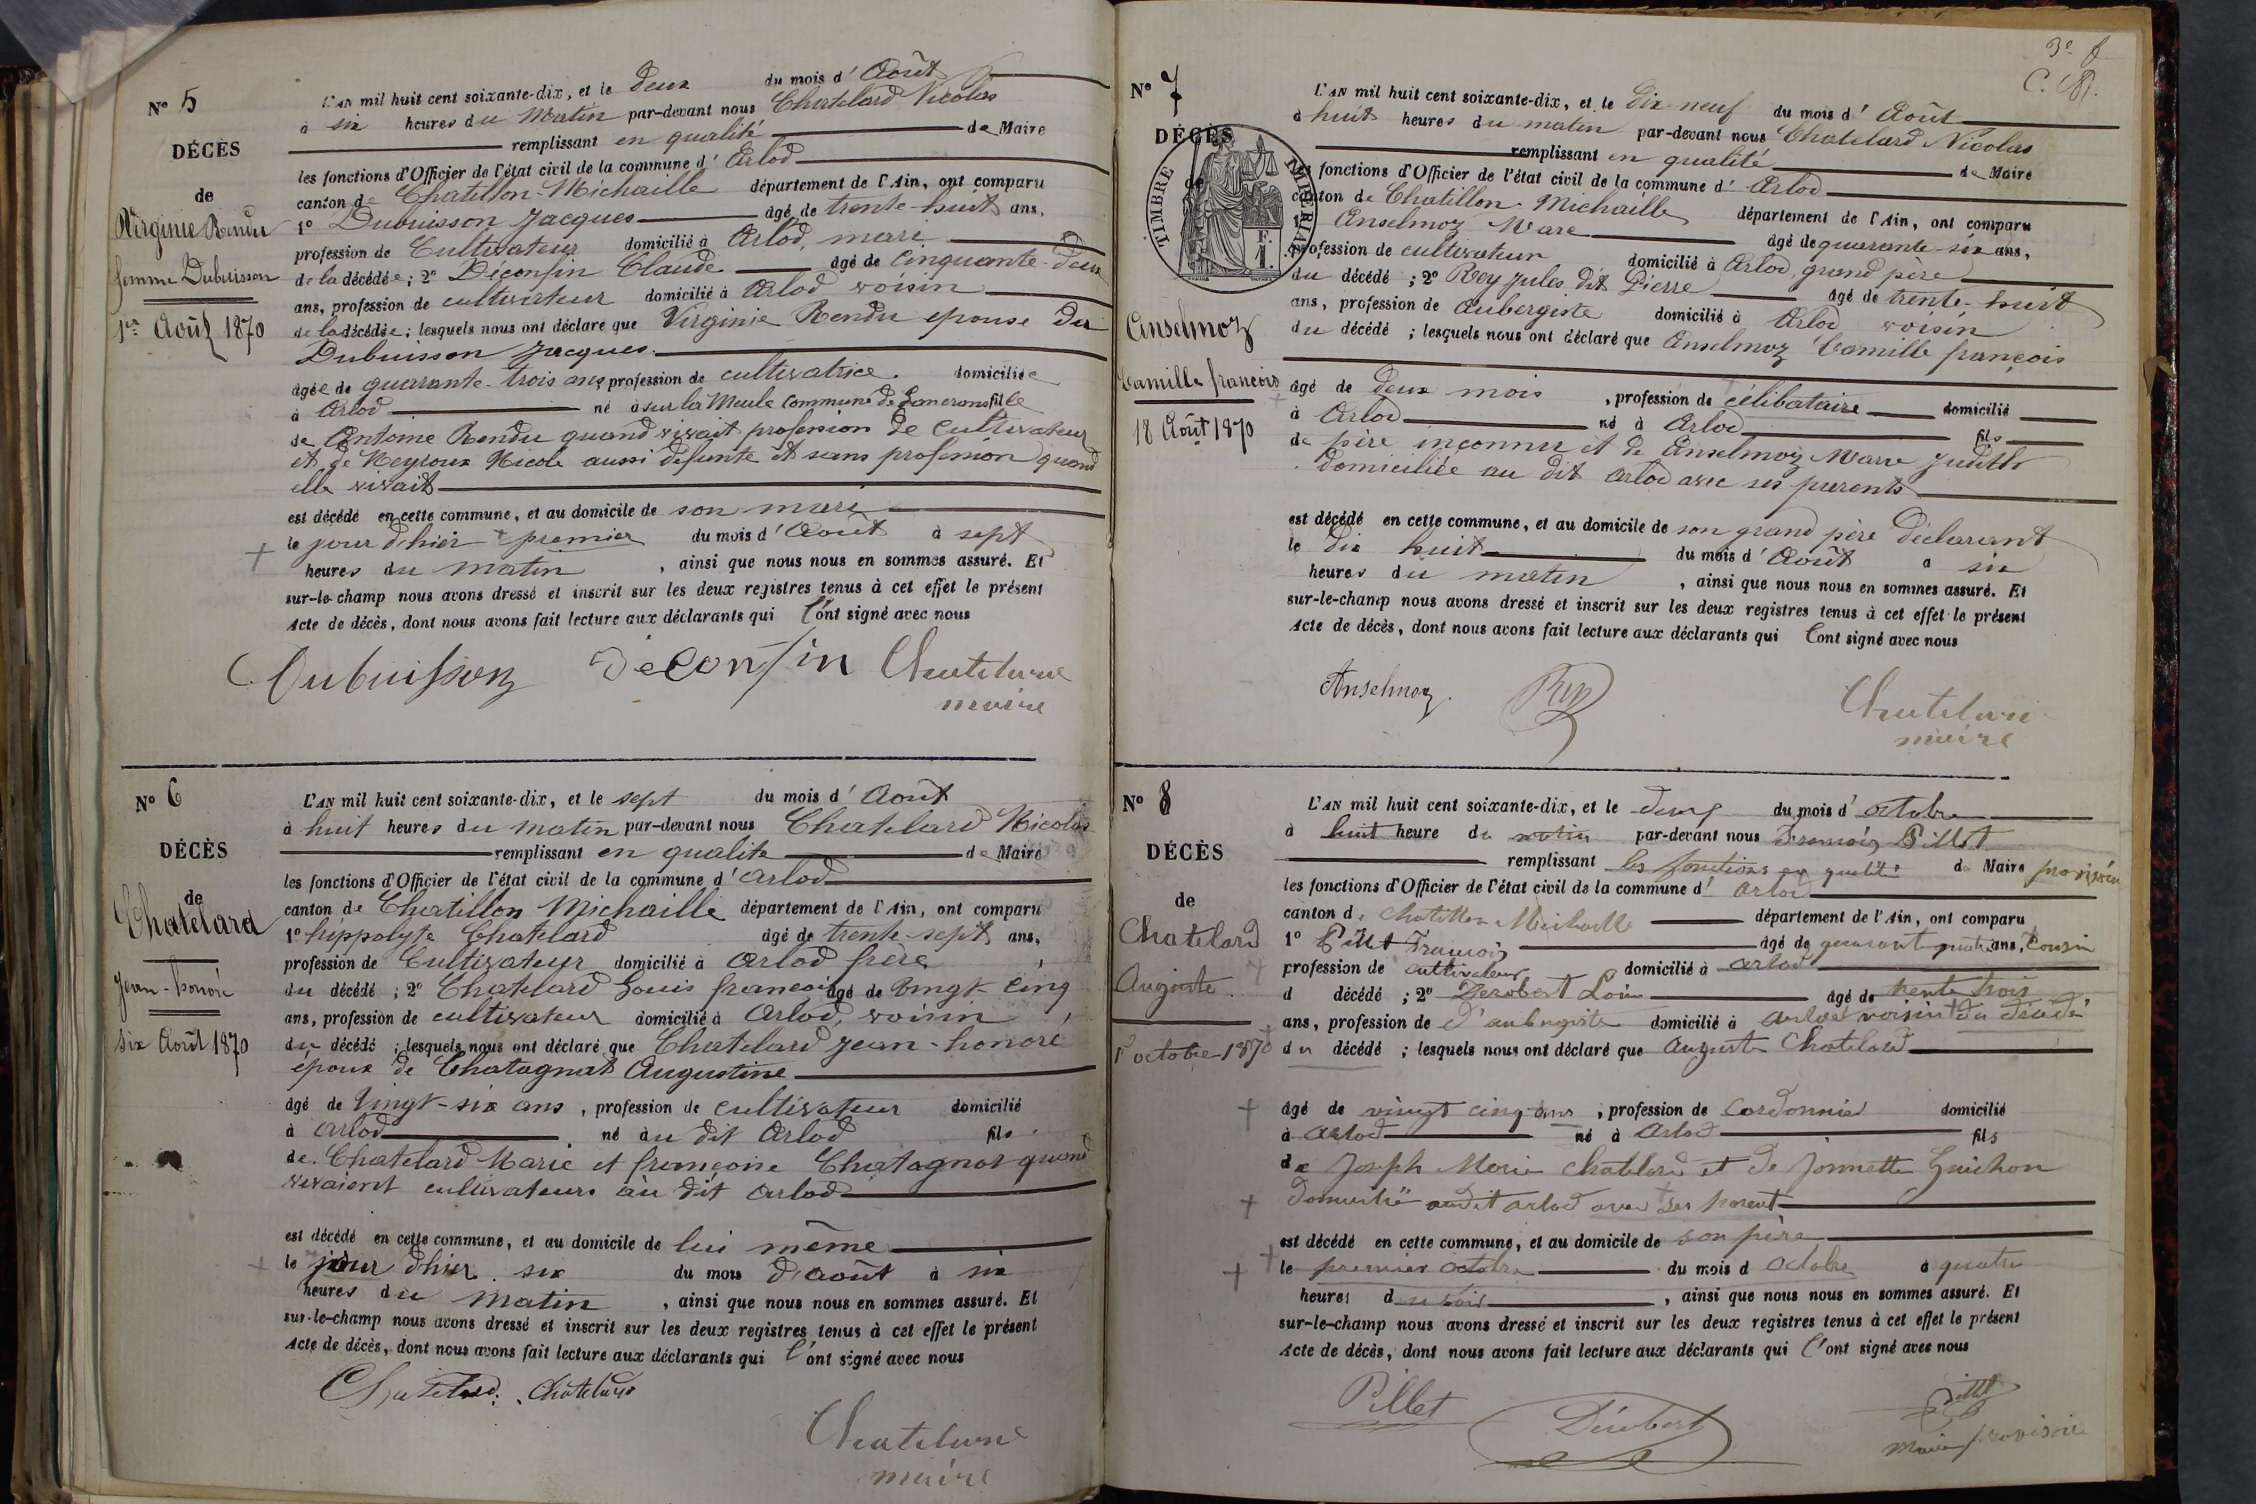 N° 5
DÉCÈS
de
Virginie Rendu
femme Dubuisson
1er Août 1870
L'AN mil huit cent soixante-dix, et le deux du mois d'Août
à six heures du Matin par-devant nous Chatelard Nicolas
remplissant en qualité de Maire
les fonctions d'Officier de l'état civil de la commune d'Arlod
canton de Chatillon-Michaille département de l'Ain, ont comparu
1° Dubuisson Jacques âgé de trente-huit ans,
profession de Cultivateur domicilié à Arlod, mari
de la décédée ; 2° Déconfin Claude âgé de cinquante-deux
ans, profession de cultivateur domicilié à Arlod voisin
de la décédée ; lesquels nous ont déclaré que Virginie Rendu epouse du
Dubuisson Jacques.
âgée de quarante-trois ans profession de cultivatrice. domiciliée
à Arlod né à sur la Meule Commune de fille
de Antoine Rendu quand vivait profession de Cultivateur
et de Neyroux Nicole aussi defunte et sans profession quand
elle vivait
est décédé en cette commune, et au domicile de son mari
le jour d'hier premier du mois d'Août à sept
heures du matin , ainsi que nous nous en sommes assuré. Et
sur-le-champ nous avons dressé et inscrit sur les deux registres tenus à cet effet le présent
Acte de décès, dont nous avons fait lecture aux déclarants qui l'ont signé avec nous
Dubuisson Deconfin Chatelard
maire
N° 6
DÉCÈS
de
Chatelard
Jean-honoré
six Août 1870
L'AN mil huit cent soixante-dix, et le sept du mois d'Août
à huit heures du matin par-devant nous Chatelard Nicolas
remplissant en qualite de Maire
les fonctions d'Officier de l'état civil de la commune d'Arlod
canton de Chatillon Michaille département de l'Ain, ont comparu
1° hippolyte Chatelard âgé de trente-sept ans,
profession de Cultivateur domicilié à Arlod frère
du décédé ; 2° Chatelard Louis françois âgé de Vingt-Cinq
ans, profession de cultivateur domicilié à Arlod, voisin
du décédé ; lesquels nous ont déclaré que Chatelard Jean-honoré
époux de Chatagnat Augustine
âgé de Vingt-six ans , profession de cultivateur domicilié
à Arlod né àu dit Arlod fils
de Chatelard Marie et françoise Chatagnat quand
vivaient cultivateurs àu dit Arlod
est décédé en cette commune, et au domicile de lui même
le jour d'hier six du mois d'Août à six
heures du Matin , ainsi que nous nous en sommes assuré. Et
sur-le-champ nous avons dressé et inscrit sur les deux registres tenus à cet effet le présent
Acte de décès, dont nous avons fait lecture aux déclarants qui l'ont signé avec nous
Chatelard. Chatelard
Chatelard
maire
3e f
N° 7
DÉCÈS
de
TIMBRE IMPERIAL
F.
1.
Anselmoz
Camille françois
18 Août 1870
L'AN mil huit cent soixante-dix, et le dix-neuf du mois d'Août
à huit heures du matin par-devant nous Chatelard Nicolas
remplissant en qualité de Maire
les fonctions d'Officier de l'état civil de la commune d'Arlod
canton de Chatillon-Michaille département de l'Ain, ont comparu
1° Anselmoz Marc âgé de quarante-six ans,
profession de cultivateur domicilié à Arlod, grand père
du décédé ; 2° Rey Jules dit Pierre âgé de trente-huit
ans, profession de Aubergiste domicilié à Arlod voisin
du décédé ; lesquels nous ont déclaré que Anselmoz Camille françois
âgé de deux mois , profession de célibataire domicilié
à Arlod né à Arlod fils
de père inconnu et de Anselmoz Marie Judith
domiciliée au dit Arlod avec ses parents
est décédé en cette commune, et au domicile de son grand père déclarant
le Dix huit du mois d'Août à six
heures du matin , ainsi que nous nous en sommes assuré. Et
sur-le-champ nous avons dressé et inscrit sur les deux registres tenus à cet effet le présent
Acte de décès, dont nous avons fait lecture aux déclarants qui l'ont signé avec nous
Anselmoz. Rey Chatelard
maire
N° 8
DÉCÈS
de
Chatelard
Augoiste
1er octobre 1870
L'AN mil huit cent soixante-dix, et le deux du mois d'octobre
à huit heure du matin par-devant nous François Pillet
remplissant les fonctions en qualité de Maire provisoire
les fonctions d'Officier de l'état civil de la commune d'Arlod
canton de Chatillon Michaille département de l'Ain, ont comparu
1° Pillet François âgé de quarant quatre ans, Cousin
profession de cultivateur domicilié à Arlod
d décédé ; 2° Derobert Louis âgé de trente trois
ans, profession de d'aubergiste domicilié à Arlod voisin du décédé
du décédé ; lesquels nous ont déclaré que August Chatelard
âgé de vingt cinq ans , profession de Cordonnier domicilié
à Arlod né à Arlod fils
de Joseph Marie Chatelard et de Jonnette Guichon
Domicilié audit Arlod avec ses parent
est décédé en cette commune, et au domicile de son père
le premier octobre du mois d octobre à quatre
heures du soir , ainsi que nous nous en sommes assuré. Et
sur-le-champ nous avons dressé et inscrit sur les deux registres tenus à cet effet le présent
Acte de décès, dont nous avons fait lecture aux déclarants qui l'ont signé avec nous
Pillet Dérobert Pillet
Maire provisoire